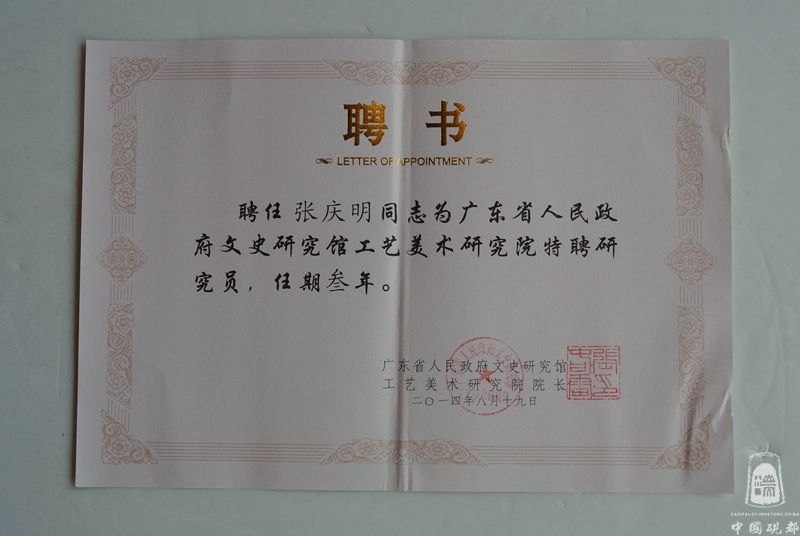 聘书
LETTER OF APPOINTMENT
聘任张庆明同志为广东省人民政
府文史研究馆工艺美术研究院特聘研
究员，任期叁年。
广东省人民政府文史研究馆
工艺美术研究院院长
二〇一四年八月十九日
CAPITAL OF INKSTONE, CHINA
中國硯都